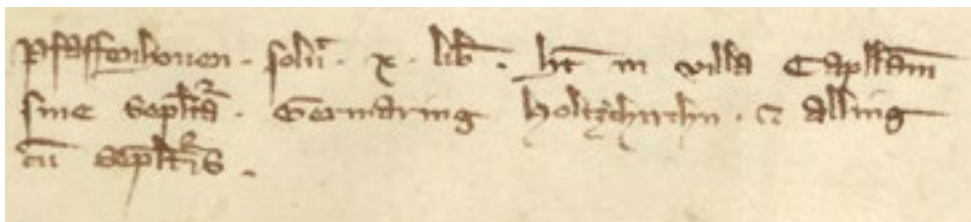 Pfaffenhouen · solũ · x · lib̃ · ht̃ in villa Capllam̃
sine sepl̃tᵃ · Germaring holtzchirchn · ⁊ alling
cũ sepl̃tᵃis ·